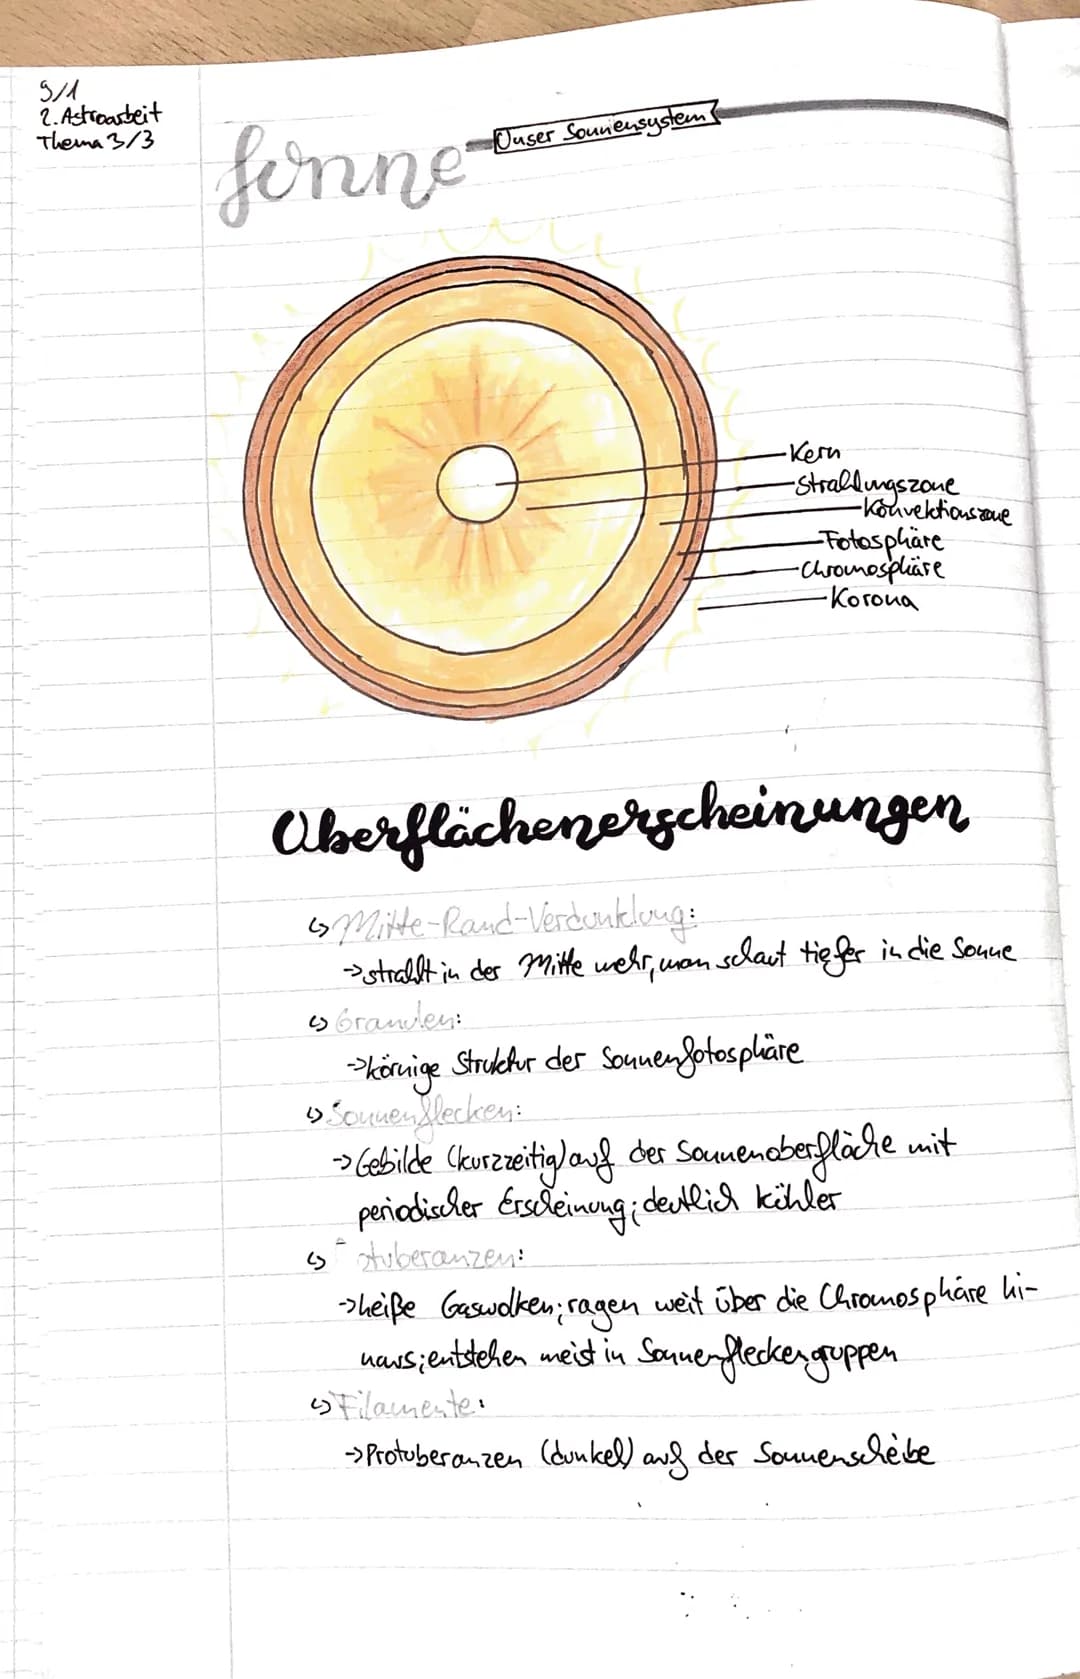 9/1
2. Astroarbeit
Thema 3/3
Sonne
Unser Sonnensystem
Kern
Strahlungszone
Konvektionszone
Fotosphäre
Chromosphäre
Korona
Oberflächenerscheinungen
↳ Mitte-Rand-Verdunklung:
→ strahlt in der Mitte mehr, man schaut tiefer in die Sonne
↳ Granulen:
→ körnige Struktur der Sonnenfotosphäre
↳ Sonnenflecken:
→ Gebilde (kurzzeitig) auf der Sonnenoberfläche mit
periodischer Erscheinung; deutlich kühler
↳ tuberanzen:
→ heiße Gaswolken; ragen weit über die Chromosphäre hi-
naus; entstehen meist in Sonnenfleckengruppen
↳ Filamente:
→ Protuberanzen (dunkel) auf der Sonnenscheibe